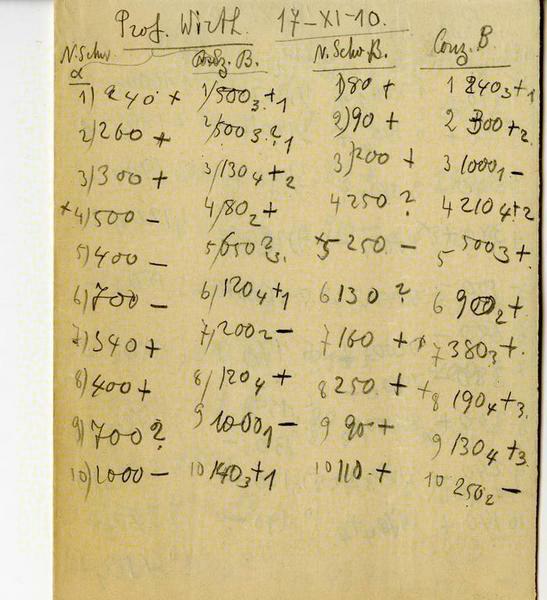 Prof. Wirth. 17-XI-10.
N. Schw. Conz. B. N. Schw. B. Conz. B
α
1) 240 + 1/ 500₃ +1 1) 80 + 1 240₃ +1
2) 260 + 2/ 500₃ ?1 2) 90 + 2 300 +2
3) 300 + 3/ 130₄ +2 3) 200 + 3 1000₁ -
*4) 500 - 4/ 80₂ + 4 250 ? 4 210₄ +2
5) 400 - 5/ 650 ?3. *5 250 - 5 500₃ +
6) 700 - 6/ 120₄ +1 6 130 ? 6 900₂ +
7) 540 + 7/ 200₂ - 7 160 ++ 7 380₃ +.
8) 400 + 8/ 120₄ + 8 250 + +8 190₄ +3.
9) 700 ? 9 1000₁ - 9 90 + 9 130₄ +3.
10) 1000 - 10 140₃ +1 10 110 + 10 250₂ -